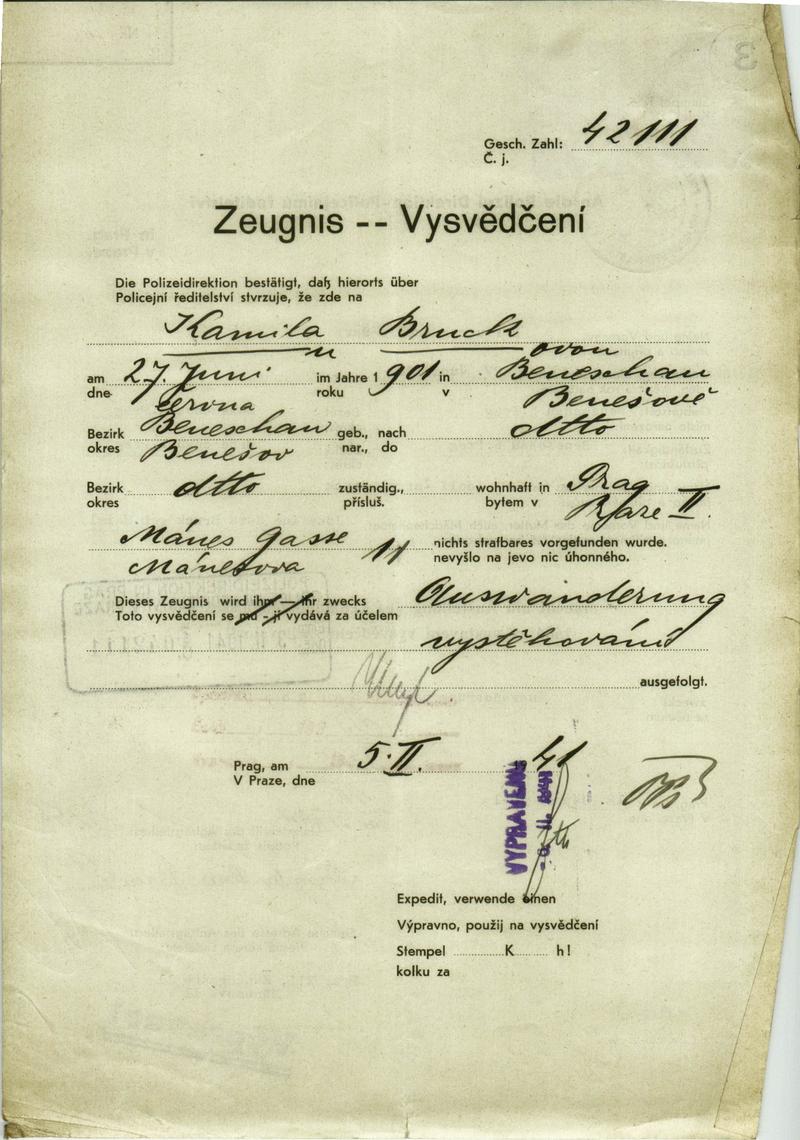 Gesch. Zahl: 42111
Č. j.
Zeugnis -- Vysvědčení
Die Polizeidirektion bestätigt, daß hierorts über
Policejní ředitelství stvrzuje, že zde na
Kamila Bruck
u ovou
am 27. Juni im Jahre 1901 in Beneschau
dne června roku v Benešově
Bezirk Beneschau geb., nach dtto
okres Benešov nar., do
Bezirk dtto zuständig., wohnhaft in Prag
okres přísluš. bytem v Praze II.
Mánes gasse 11 nichts strafbares vorgefunden wurde.
Mánesova nevyšlo na jevo nic úhonného.
Dieses Zeugnis wird ihm — ihr zwecks Auswanderung
Toto vysvědčení se mu - jí vydává za účelem
vystěhování
ausgefolgt.
Prag, am 5. II. 41
V Praze, dne
VYPRAVENO
Expedit, verwende einen
Výpravno, použij na vysvědčení
Stempel K h!
kolku za